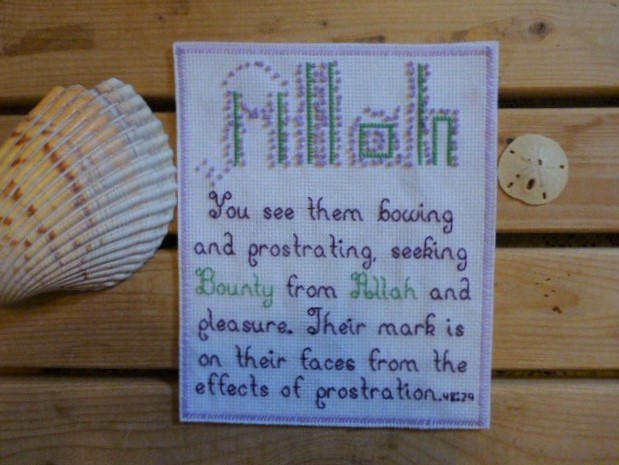 Allah
You see them bowing
and prostrating, seeking
Bounty from Allah and
pleasure. Their mark is
on their faces from the
effects of prostration. 48:29